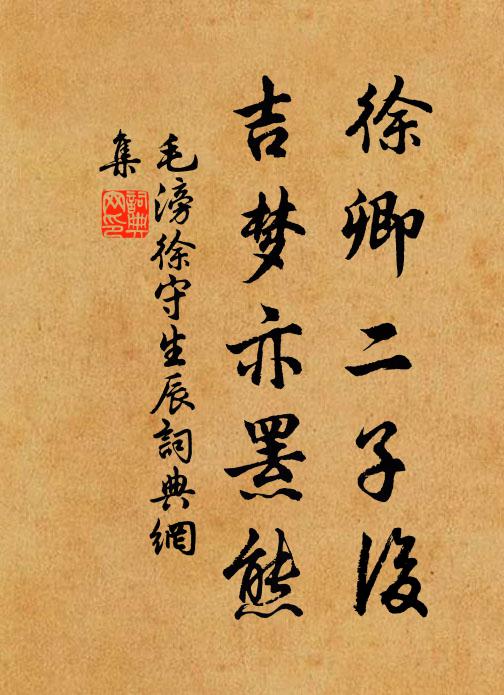 徐卿二子後
吉梦亦罴熊
毛滂徐守生辰詞典網
集
詞典网印